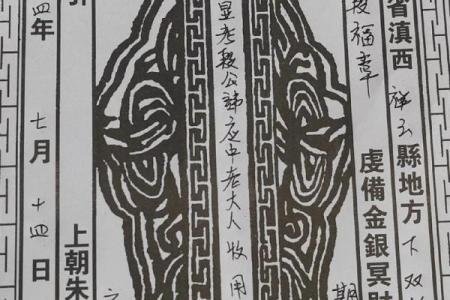 省滇西祥云縣地方下双
虔備金銀冥財
期
段福幸
显考段公諱应中老大人收用
引
上朝朱
四年七月十四日